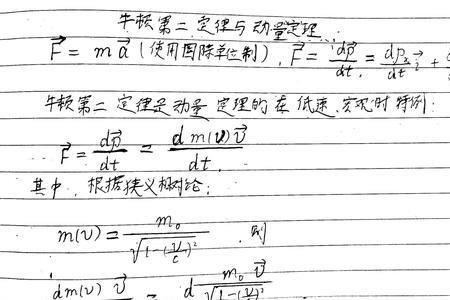 牛顿第二定律与动量定理
F⃗ = m a⃗ (使用国际单位制), F⃗ = dp⃗/dt = dpₓ/dt i⃗ +
牛顿第二定律是动量定理的在低速、宏观时特例:
F⃗ = dp⃗/dt = d m(v) v⃗/dt.
其中, 根据狭义相对论:
m(v) = m₀/√(1-(v/c)²) , 则
dm(v) v⃗ = d m₀ v⃗/√(1-(v/c)²)